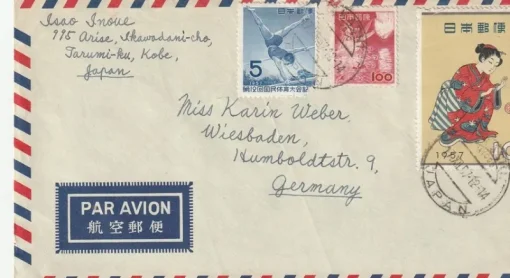 Isao Inoue
995 Arise, Ikawadani-cho,
Tarumi-ku, Kobe,
Japan
日本郵便
5
日本郵便
100
日本郵便
1957
JAPAN
Miss Karin Weber
Wiesbaden,
Humboldtstr. 9,
Germany
PAR AVION
航空郵便